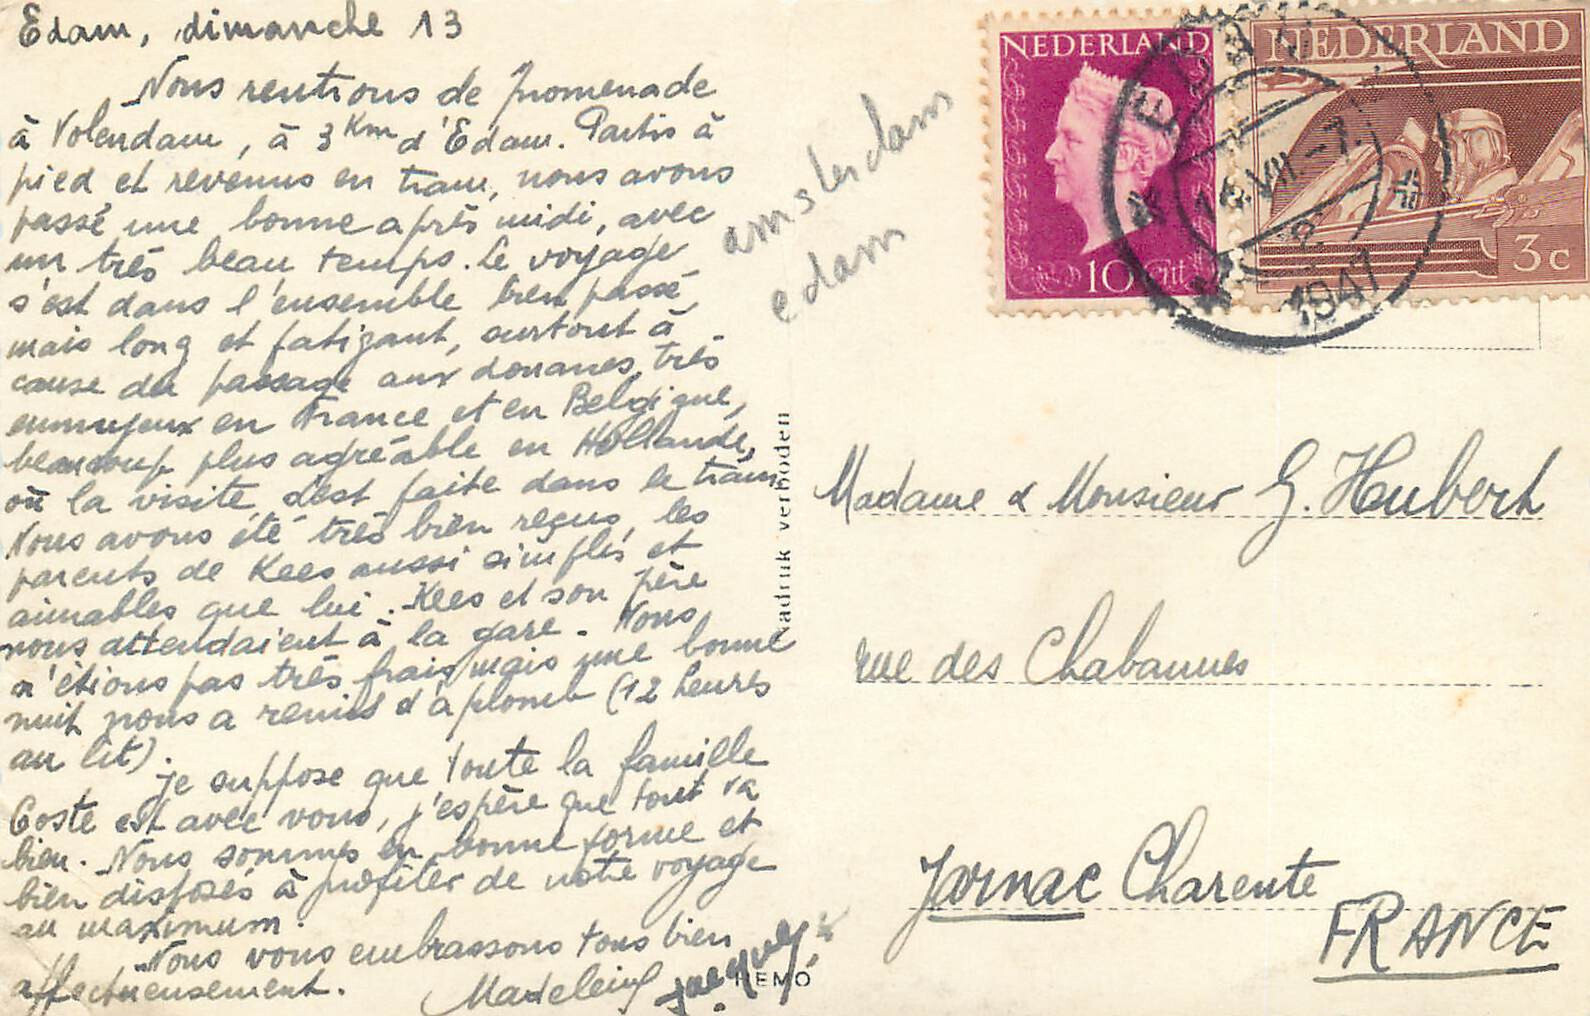 Edam, dimanche 13
Nous rentrons de promenade
à Volendam, à 3 Km d'Edam. Partis à
pied et revenus en tram, nous avons
passé une bonne après midi, avec
un très beau temps. Le voyage
s'est dans l'ensemble bien passé,
mais long et fatigant, surtout à
cause du passage aux douanes, très
ennuyeux en France et en Belgique,
beaucoup plus agréable en Hollande,
où la visite s'est faite dans le train.
Nous avons été très bien reçus, les
parents de Kees aussi simples et
aimables que lui. Kees et son père
nous attendaient à la gare. Nous
n'étions pas très frais mais une bonne
nuit nous a remis d'aplomb (12 heures
au lit).
Je suppose que toute la famille
Coste est avec vous, j'espère que tout va
bien. Nous sommes en bonne forme et
bien disposés à profiter de notre voyage
au maximum.
Nous vous embrassons tous bien
affectueusement.
Madeleine Jacques
amsterdam
edam
Nadruk verboden
HEMO
NEDERLAND
10 cent
NEDERLAND
3 c
VII.-7.
1947
Madame & Monsieur G. Hubert
rue des Chabannes
Jarnac Charente
FRANCE